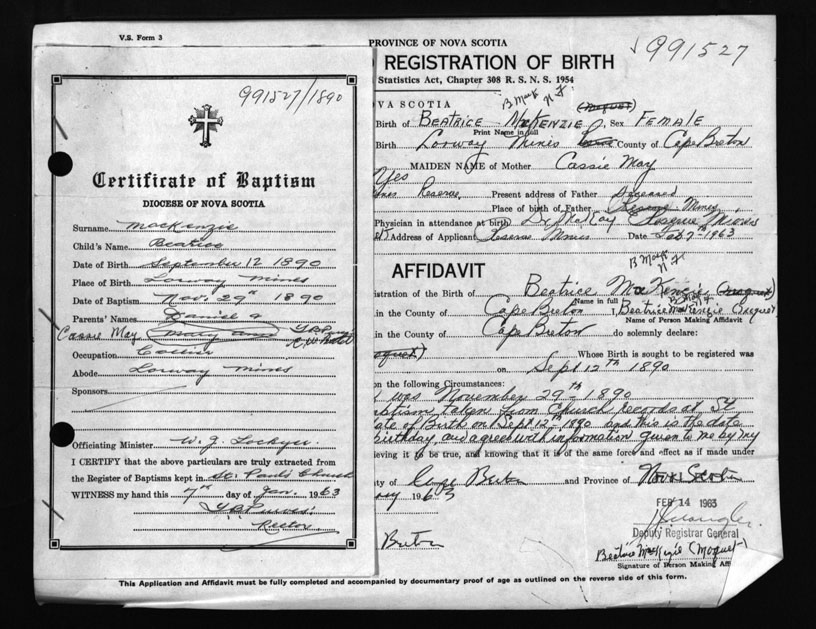 V.S. Form 3
991527/1890
Certificate of Baptism
DIOCESE OF NOVA SCOTIA
Surname MacKenzie
Child's Name Beatrice
Date of Birth September 12 1890
Place of Birth Lorway Mines
Date of Baptism Nov. 29th 1890
Parents' Names Daniel A
Cassie May Mary Ann
Occupation Collier
Abode Lorway Mines
Sponsors
Officiating Minister W. J. Lockyer
I CERTIFY that the above particulars are truly extracted from
the Register of Baptisms kept in St. Paul's Church
WITNESS my hand this 7th day of Jan. 1963
Rector
PROVINCE OF NOVA SCOTIA
991527
REGISTRATION OF BIRTH
Statistics Act, Chapter 308 R. S. N. S. 1954
VA SCOTIA
(Moquet)
Birth of BEATRICE McKENZIE, Sex FEMALE
Print Name in full
Birth Lorway Mines County of Cape Breton
MAIDEN NAME of Mother Cassie May
Yes
Reserve Present address of Father Deceased
Place of birth of Father Mines
Physician in attendance at birth Dr. MacKay Reserve Mines
Address of Applicant Reserve Mines Date Feb 7th 1963
AFFIDAVIT
istration of the Birth of Beatrice MacKenzie (Moquet)
Name in full
in the County of Cape Breton I, Beatrice MacKenzie (Moquet)
Name of Person Making Affidavit
in the County of Cape Breton do solemnly declare:
oquet) Whose Birth is sought to be registered was
on Sept 12th 1890
on the following Circumstances:
was November 29th 1890
aptism taken from Church Records at St
ate of Birth on Sept 12th 1890 and this is the date
birthday, and agree with information given to me by my
ieving it to be true, and knowing that it is of the same force and effect as if made under
ty of Cape Breton and Province of Nova Scotia
ry 1963
FEB 14 1963
Deputy Registrar General
Breton
Beatrice MacKenzie (Moquet)
Signature of Person Making Affi
This Application and Affidavit must be fully completed and accompanied by documentary proof of age as outlined on the reverse side of this form.